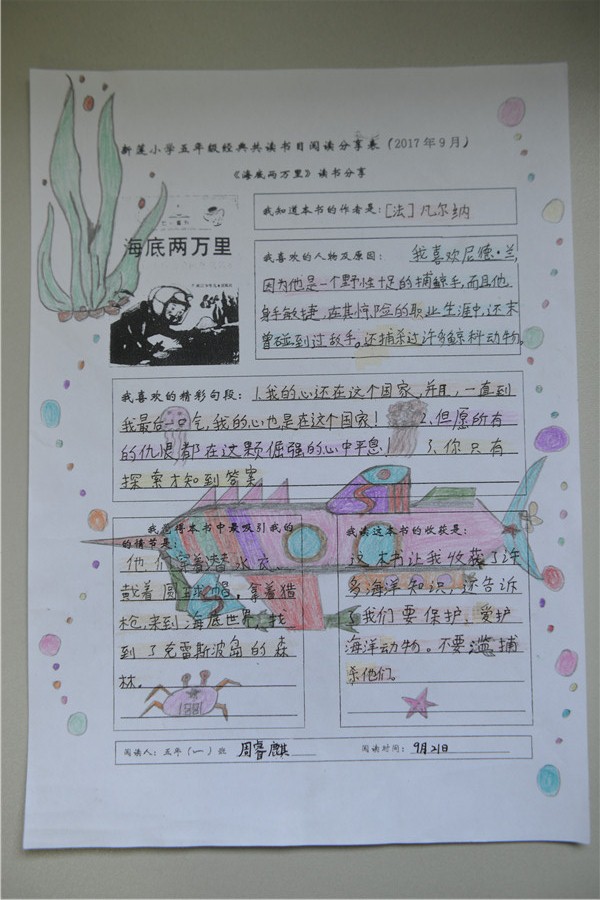 新莲小学五年级经典共读书目阅读分享表（2017年9月）
《海底两万里》读书分享
海底两万里
我知道本书的作者是：[法]凡尔纳
我喜欢的人物及原因： 我喜欢尼德·兰,
因为他是一个野性十足的捕鲸手,而且他
身手敏捷,在其惊险的职业生涯中,还未
曾碰到过敌手。还捕杀过许多鲸科动物。
我喜欢的精彩句段：1.我的心还在这个国家,并且,一直到
我最后一口气,我的心也是在这个国家！ 2.但愿所有
的仇恨都在这颗倔强的心中平息！ 3.你只有
探索才知到答案
我觉得本书中最吸引我的
的情节是
他们穿着潜水衣,
戴着圆球帽,拿着猎
枪,来到海底世界,找
到了克雷斯波岛的森
林。
我读这本书的收获是：
这本书让我收获了许
多海洋知识,还告诉
了我们要保护、爱护
海洋动物。不要滥捕
杀他们。
阅读人：五年（一）班 周睿麒
阅读时间：9月21日